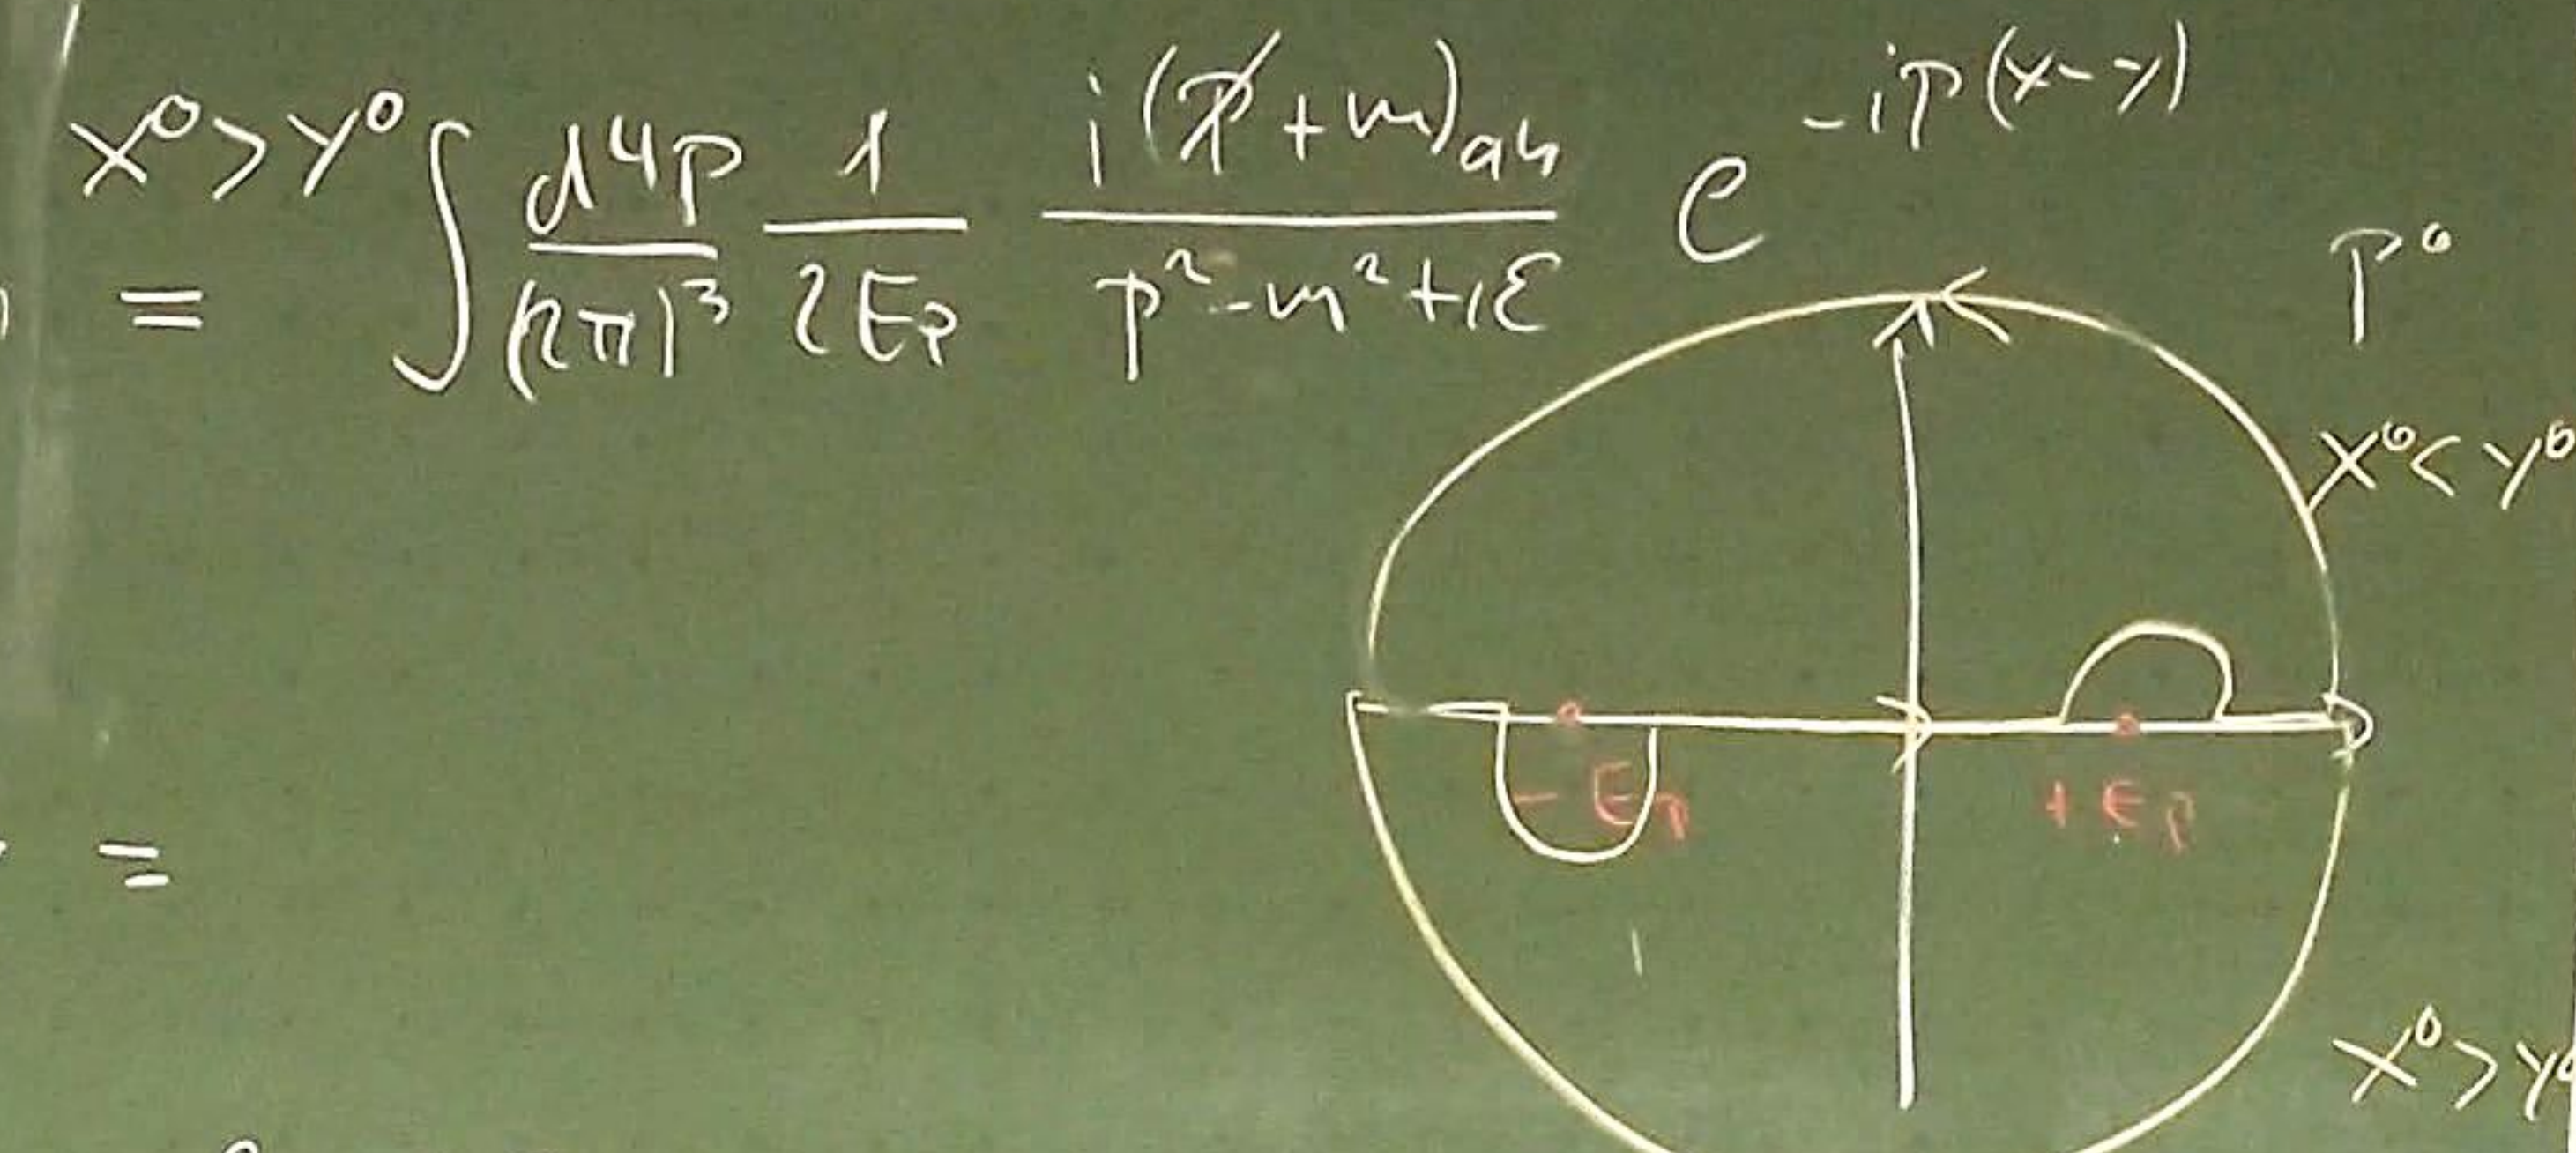 x⁰>y⁰
= ∫ d⁴p/(2π)³ 1/2E_p i(p̸+m)_ab/(p²-m²+iε) e^{-ip(x-y)}
p⁰
x⁰<y⁰
-E_p +E_p
=
x⁰>y⁰